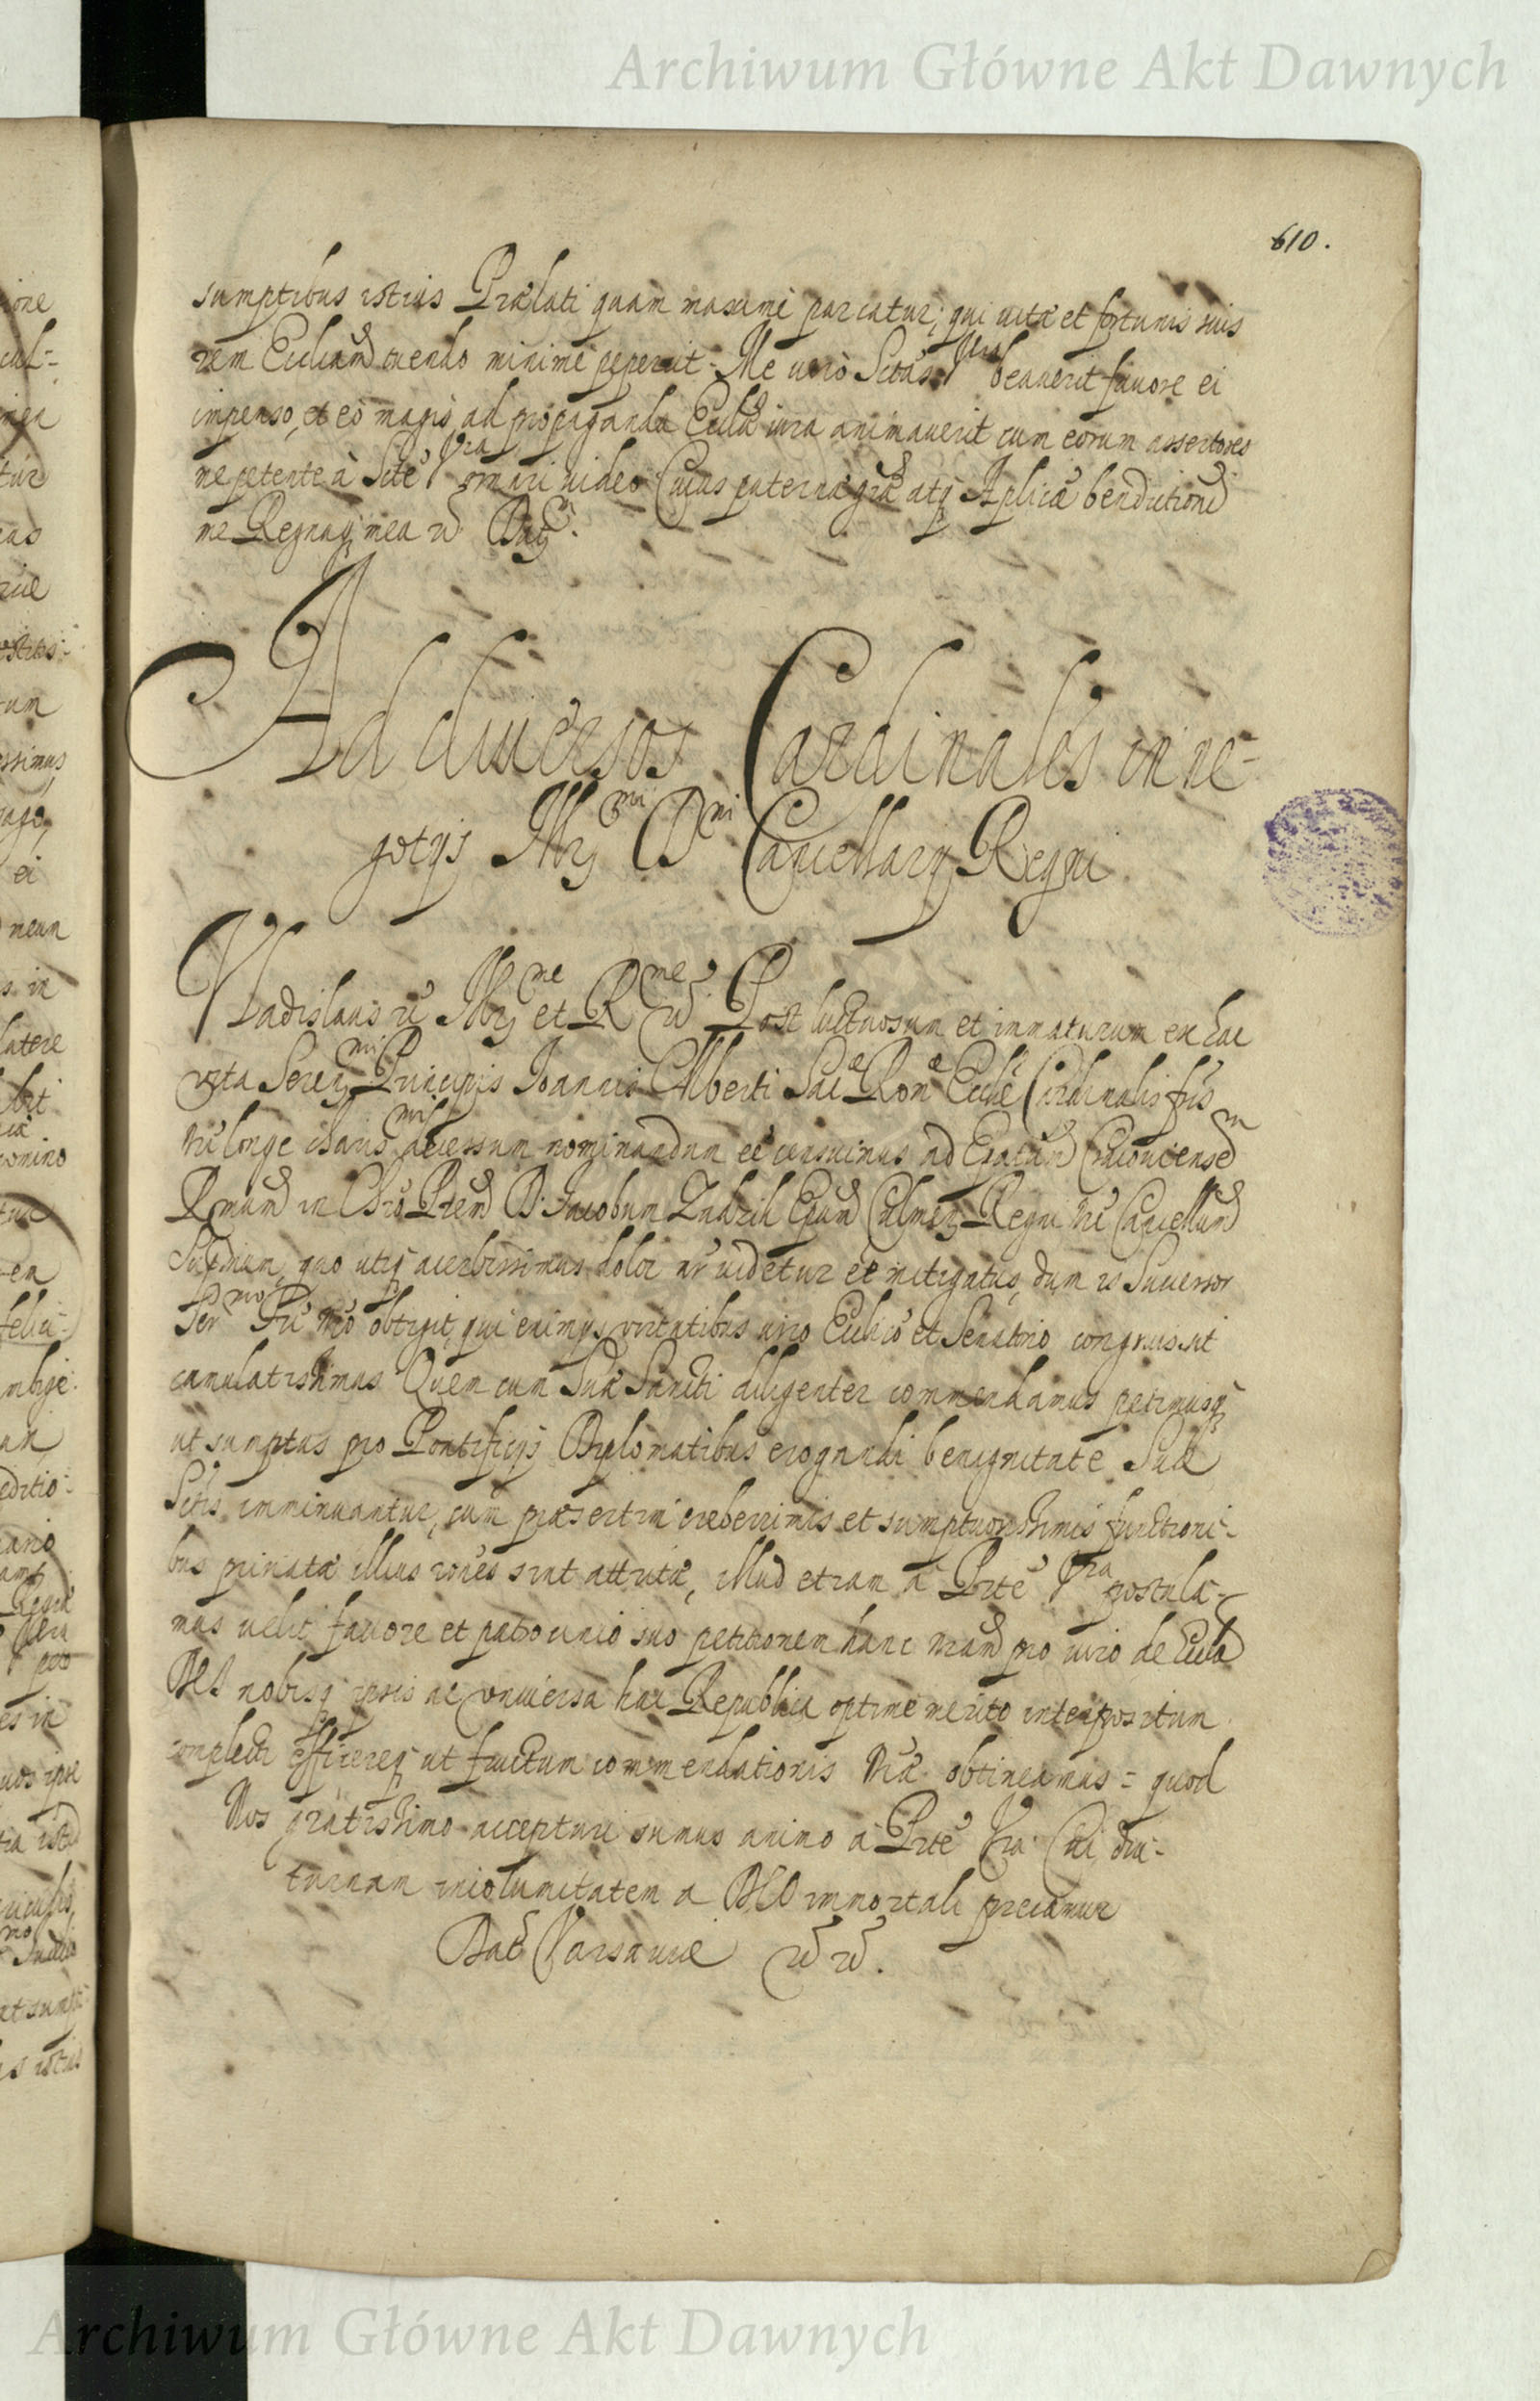 Archiwum Główne Akt Dawnych
610.
sumptibus istius Prælati quam maxime parcatur; qui vitæ et fortunis suis
rem Ecclicam tuendo minime pepercit. Me vero Sctas Vra beaverit favore ei
impenso, et eo magis ad propaganda Ecclæ iura animaverit cum eorum assertores
me petente à Scte Vra ornari video Cuius paternæ græ atq Aplicæ bendictioni
me Regnaq mea etc Datt.
Ad diversos Cardinales in ne-
gotijs Illrmi Dni Cancellarij Regni
Vladislaus etc Illrme et Rme etc Post luctuosum et immaturum ex hac
vita Serenmi Principis Joannis Alberti Sac Rom Eccle Cardinalis fris
nri longe charismi decessum nominandum ee censuimus ad Epatum Cracoviensem
Rmum in Chro Prem D. Jacobum Zadzik Epum Culmen Regni nri Cancellm
Supmum, quo utiq acerbissimus dolor nr videtur ee mitigatus, dum is Successor
Sermo Pri nro obtigit, qui eximijs virtutibus viro Ecclico et Senatorio congruis sit
cumulatissimus Quem cum Suæ Sancti diligenter commendamus petimusq
ut sumptus pro Pontificijs Diplomatibus erogandi benignitate Suæ
Sctis imminuantur, cum præsertim creberrimis et sumptuosissimis functioni-
bus privatæ illius rones sint attritæ, illud etiam a Prte Vra postula-
mus velit favore et patrocinio suo petitionem hanc nram pro viro de Eccla
DEI nobisq ipsis ac universa hac Republica optime merito interpositam
complecti efficereq ut fructum commendationis nræ obtineamus = quod
Nos gratissimo accepturi sumus animo a Prte Vra Cui diu-
turnam incolumitatem a DEO immortali precamur
Dat Varsaviæ etc etc.
Archiwum Główne Akt Dawnych